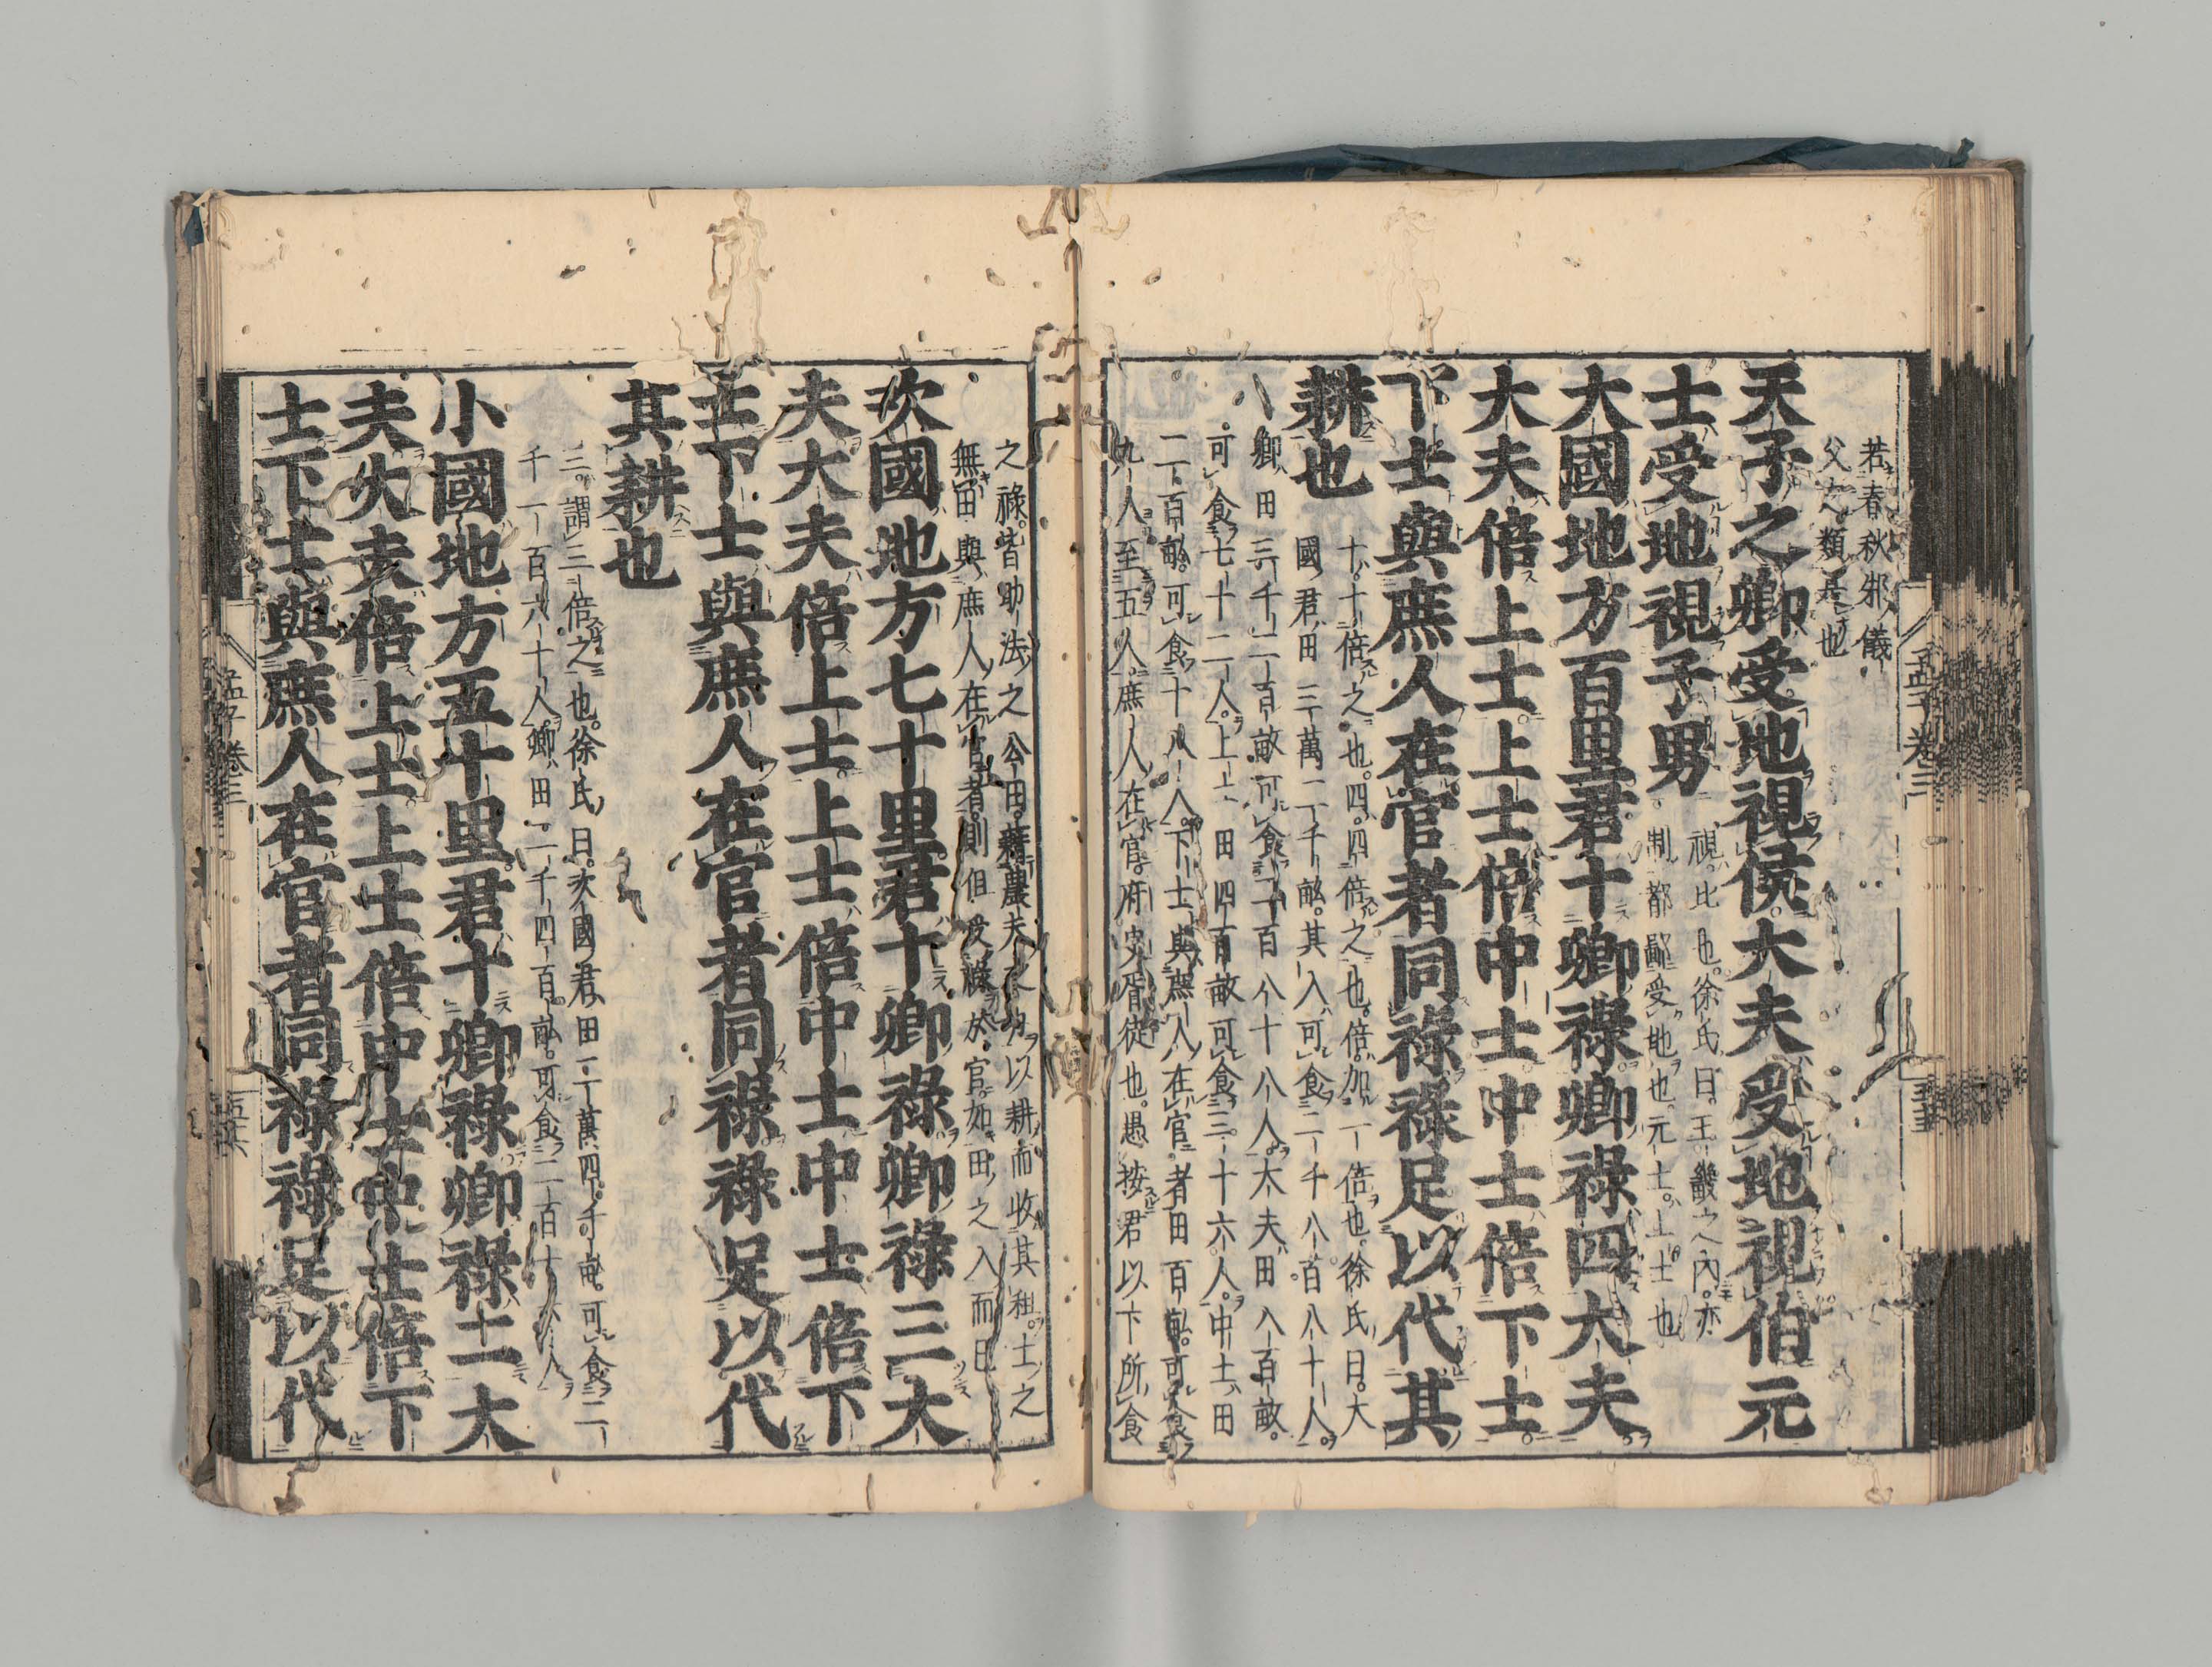 若春秋邾儀
父之類是也
天子之卿受地視侯大夫受地視伯元
士受地視子男
視比也徐氏曰王畿之內亦
制都鄙受地也元士上士也
大國地方百里君十卿祿卿祿四大夫
大夫倍上士上士倍中士中士倍下士
下士與庶人在官者同祿祿足以代其
耕也
十十倍之也四四倍之也倍加一倍也徐氏曰大
國君田三萬二千畝其入可食二千八百八十人
卿田三千二百畝可食二百八十八人大夫田八百畝
可食七十二人上士田四百畝可食三十六人中士田
二百畝可食十八人下士與庶人在官者田百畝可食
九人至五人庶人在官府史胥徒也愚按君以下所食
孟子卷三
之祿皆助法之公田藉農夫之力以耕而收其租士之
無田與庶人在官者則但受祿於官如田之入而已
次國地方七十里君十卿祿卿祿三大
夫大夫倍上士上士倍中士中士倍下
士下士與庶人在官者同祿祿足以代
其耕也
三謂三倍之也徐氏曰次國君田二萬四千畝可食二
千一百六十人卿田二千四百畝可食二百十六人
小國地方五十里君十卿祿卿祿二大
夫大夫倍上士上士倍中士中士倍下
士下士與庶人在官者同祿祿足以代
孟子卷三